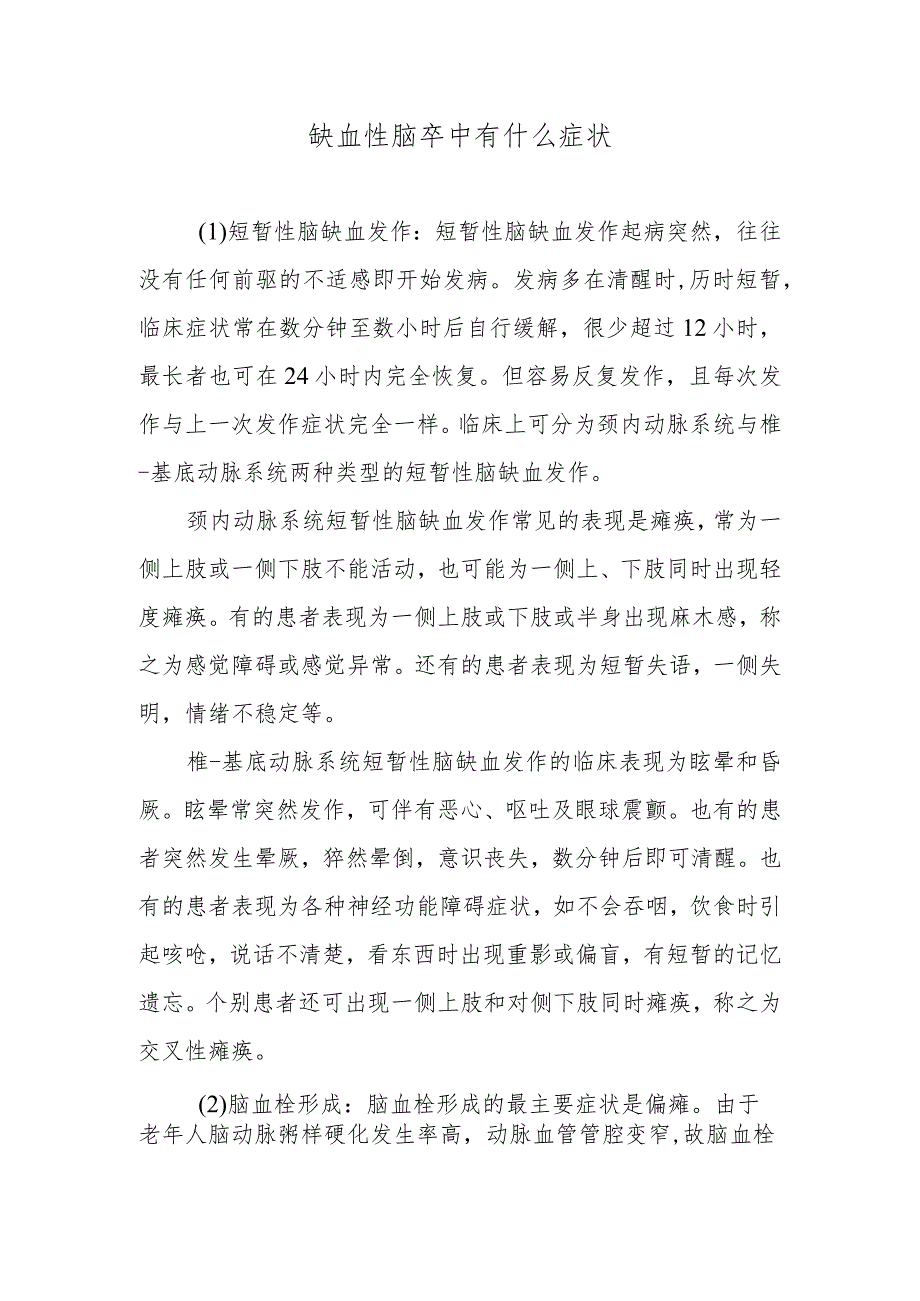 缺血性脑卒中有什么症状
(1)短暂性脑缺血发作：短暂性脑缺血发作起病突然，往往
没有任何前驱的不适感即开始发病。发病多在清醒时,历时短暂，
临床症状常在数分钟至数小时后自行缓解，很少超过12小时，
最长者也可在24小时内完全恢复。但容易反复发作，且每次发
作与上一次发作症状完全一样。临床上可分为颈内动脉系统与椎
-基底动脉系统两种类型的短暂性脑缺血发作。
颈内动脉系统短暂性脑缺血发作常见的表现是瘫痪，常为一
侧上肢或一侧下肢不能活动，也可能为一侧上、下肢同时出现轻
度瘫痪。有的患者表现为一侧上肢或下肢或半身出现麻木感，称
之为感觉障碍或感觉异常。还有的患者表现为短暂失语，一侧失
明，情绪不稳定等。
椎-基底动脉系统短暂性脑缺血发作的临床表现为眩晕和昏
厥。眩晕常突然发作，可伴有恶心、呕吐及眼球震颤。也有的患
者突然发生晕厥，猝然晕倒，意识丧失，数分钟后即可清醒。也
有的患者表现为各种神经功能障碍症状，如不会吞咽，饮食时引
起咳呛，说话不清楚，看东西时出现重影或偏盲，有短暂的记忆
遗忘。个别患者还可出现一侧上肢和对侧下肢同时瘫痪，称之为
交叉性瘫痪。
(2)脑血栓形成：脑血栓形成的最主要症状是偏瘫。由于
老年人脑动脉粥样硬化发生率高，动脉血管管腔变窄,故脑血栓